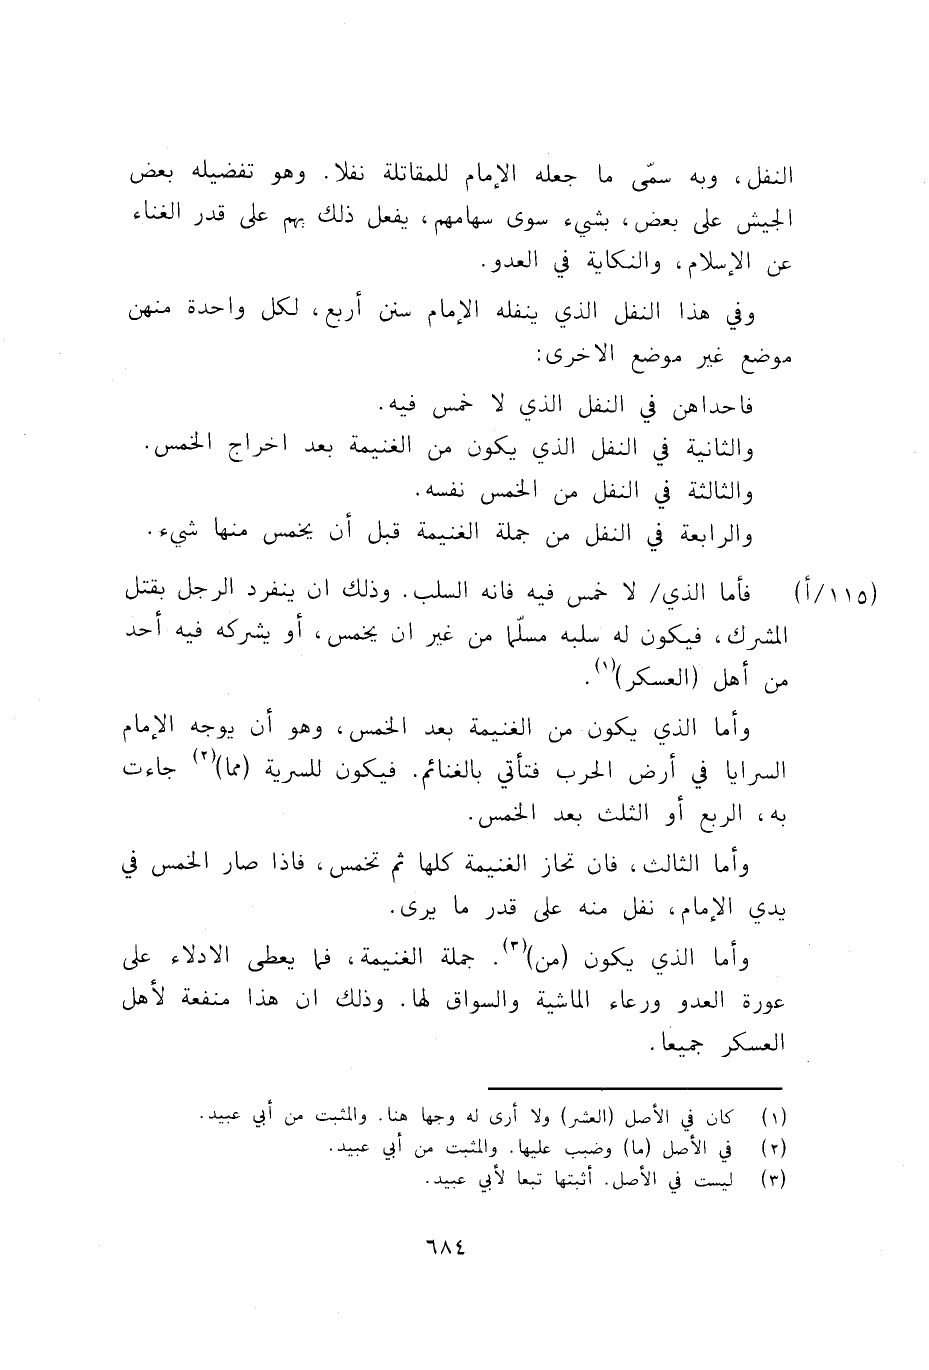 النفل، وبه سمّى ما جعله الإمام للمقاتلة نفلا. وهو تفضيله بعض
الجيش على بعض، بشيء سوى سهامهم، يفعل ذلك بهم على قدر الغناء
عن الإسلام، والنكاية في العدو.
وفي هذا النفل الذي ينفله الإمام سنن أربع، لكل واحدة منهن
موضع غير موضع الاخرى:
فاحداهن في النفل الذي لا خمس فيه.
والثانية في النفل الذي يكون من الغنيمة بعد اخراج الخمس.
والثالثة في النفل من الخمس نفسه.
والرابعة في النفل من جملة الغنيمة قبل أن يخمس منها شيء.
(١١٥/أ) فأما الذي/ لا خمس فيه فانه السلب. وذلك ان ينفرد الرجل بقتل
المشرك، فيكون له سلبه مسلّما من غير ان يخمس، أو يشركه فيه أحد
من أهل (العسكر)(١).
وأما الذي يكون من الغنيمة بعد الخمس، وهو أن يوجه الإمام
السرايا في أرض الحرب فتأتي بالغنائم. فيكون للسرية (مما)(٢) جاءت
به، الربع أو الثلث بعد الخمس.
وأما الثالث، فان تحاز الغنيمة كلها ثم تخمس، فاذا صار الخمس في
يدي الإمام، نفل منه على قدر ما يرى.
وأما الذي يكون (من)(٣). جملة الغنيمة، فما يعطى الادلاء على
عورة العدو ورعاء الماشية والسواق لها. وذلك ان هذا منفعة لأهل
العسكر جميعا.
(١) كان في الأصل (العشر) ولا أرى له وجها هنا. والمثبت من أبي عبيد.
(٢) في الأصل (ما) وضبب عليها. والمثبت من أبي عبيد.
(٣) ليست في الأصل. أثبتها تبعا لأبي عبيد.
٦٨٤